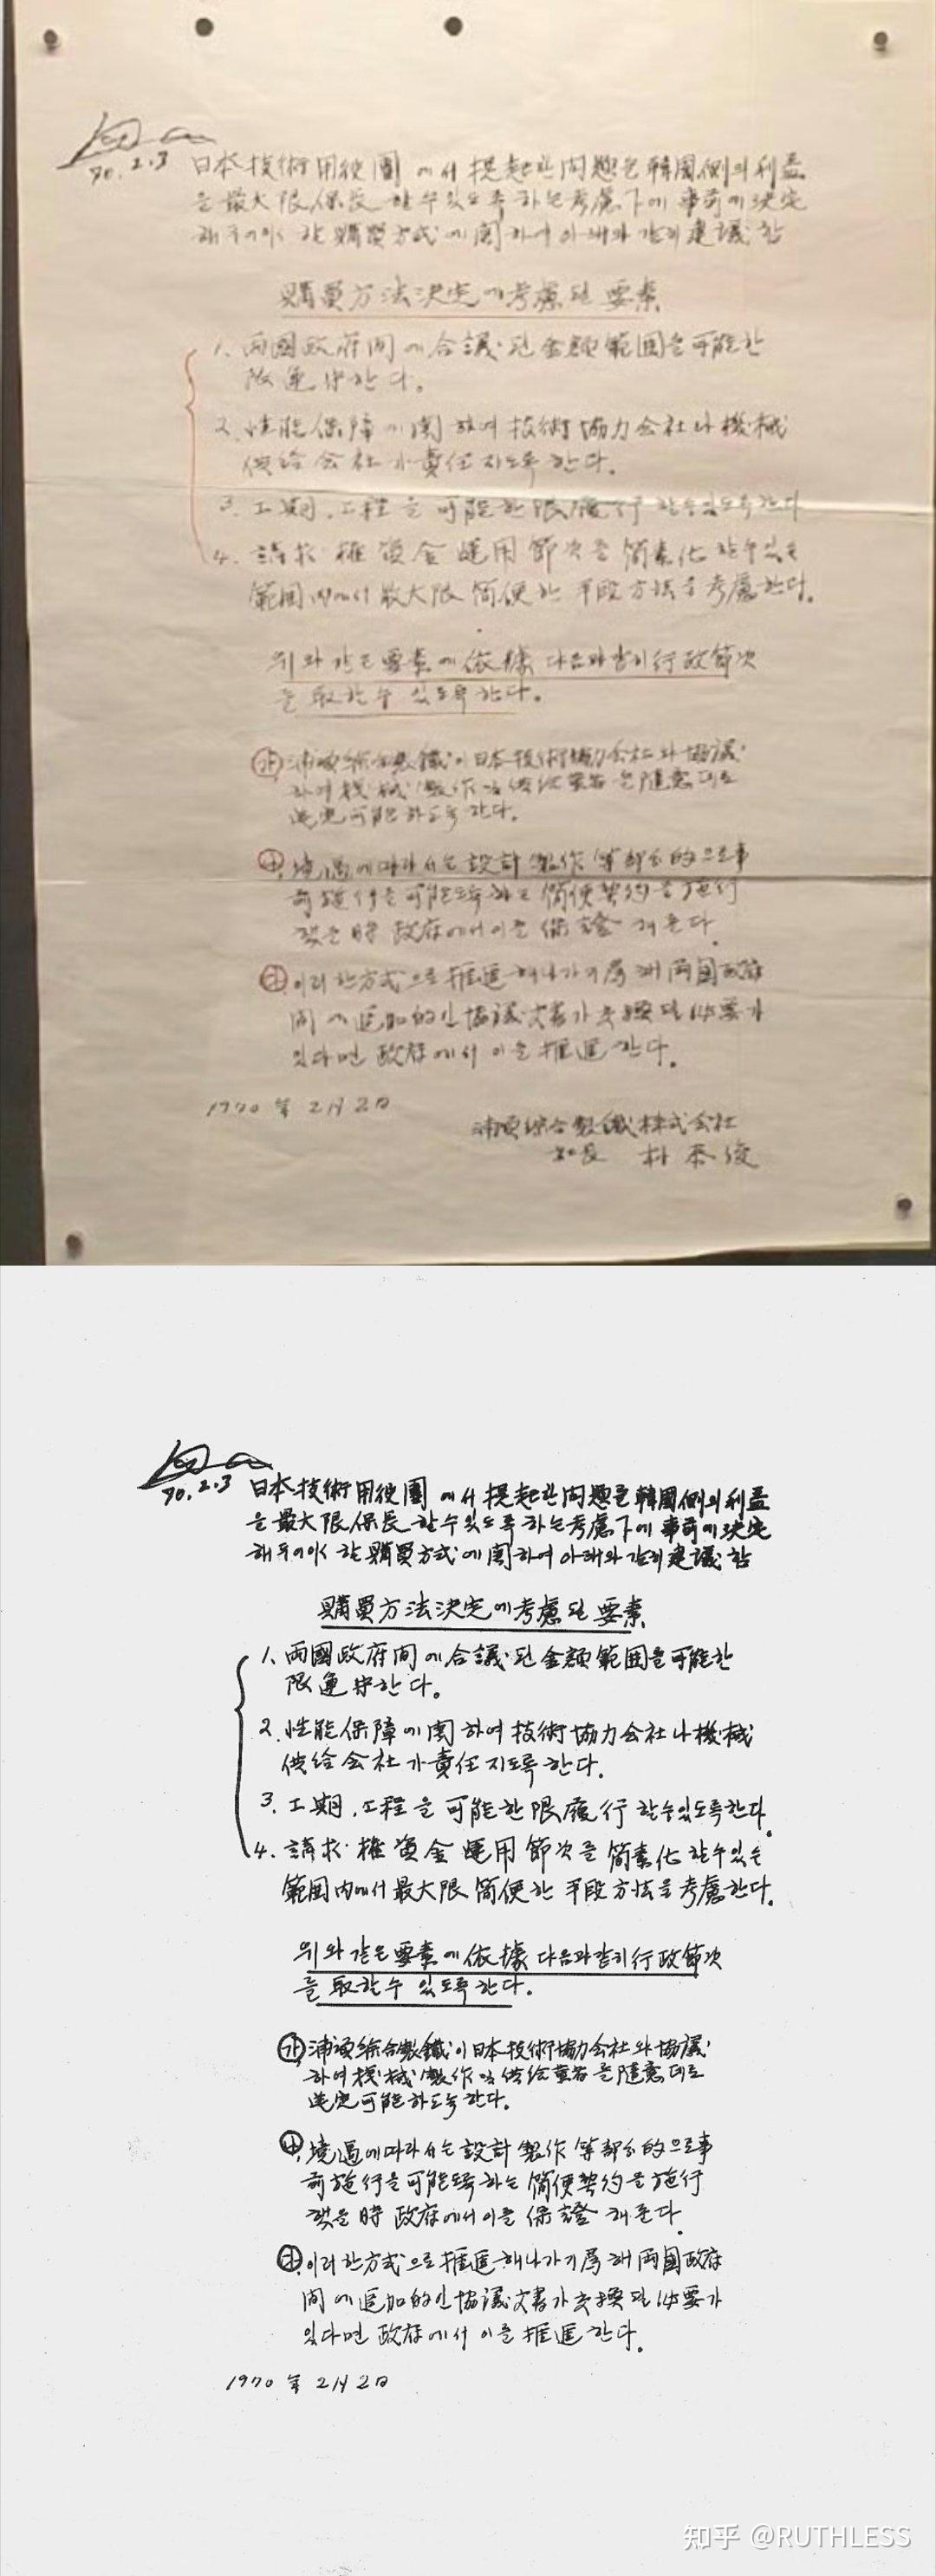 70.2.3
日本技術用役團에서 提起한 問題를 韓國側의 利益
을 最大限 保長할 수 있도록 하는 考慮下에 事前에 決定
해 주어야 할 購買方式에 関하여 아래와 같이 建議함
購買方法決定에 考慮될 要素
1. 両國政府間에 合議된 金額範囲을 可能한
限 遵守한다.
2. 性能保障에 関하여 技術協力会社나 機械
供給会社가 責任지도록 한다.
3. 工期, 工程을 可能한 限 履行할 수 있도록 한다
4. 請求權資金 運用節次를 簡素化할 수 있는
範囲内에서 最大限 簡便한 手段方法을 考慮한다.
위와 같은 要素에 依據 다음과 같이 行政節次
를 取할 수 있도록 한다.
㉮ 浦項綜合製鐵이 日本技術協力会社와 協議
하여 機械製作 및 供給業者를 隨意대로
選定可能하도록 한다.
㉯ 境遇에 따라서는 設計 製作 等 部分的으로 事
前施行을 可能토록 하는 簡便契約을 施行
할 時 政府에서 이를 保證해 준다.
㉰ 이러한 方式으로 推進해 나가기 為해 両國政府
間에 追加的인 協議文書가 交換될 必要가
있다면 政府에서 이를 推進한다.
1970年 2月 2日
浦項綜合製鐵株式会社
社長 朴泰俊
70.2.3
日本技術用役團에서 提起한 問題를 韓國側의 利益
을 最大限 保長할 수 있도록 하는 考慮下에 事前에 決定
해 주어야 할 購買方式에 関하여 아래와 같이 建議함
購買方法決定에 考慮될 要素
1. 両國政府間에 合議된 金額範囲을 可能한
限 遵守한다.
2. 性能保障에 関하여 技術協力会社나 機械
供給会社가 責任지도록 한다.
3. 工期, 工程을 可能한 限 履行할 수 있도록 한다.
4. 請求權資金 運用節次를 簡素化할 수 있는
範囲内에서 最大限 簡便한 手段方法을 考慮한다.
위와 같은 要素에 依據 다음과 같이 行政節次
를 取할 수 있도록 한다.
㉮ 浦項綜合製鐵이 日本技術協力会社와 協議
하여 機械製作 및 供給業者를 隨意대로
選定可能하도록 한다.
㉯ 境遇에 따라서는 設計 製作 等 部分的으로 事
前施行을 可能토록 하는 簡便契約을 施行
할 時 政府에서 이를 保證해 준다.
㉰ 이러한 方式으로 推進해 나가기 為해 両國政府
間에 追加的인 協議文書가 交換될 必要가
있다면 政府에서 이를 推進한다.
1970年 2月 2日
知乎 @RUTHLESS